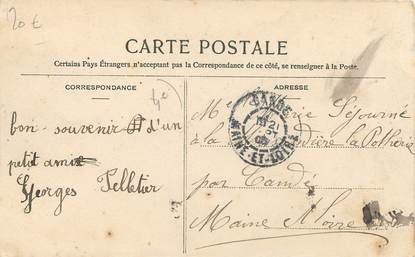 20 €
CARTE POSTALE
Certains Pays Étrangers n'acceptant pas la Correspondance de ce côté, se renseigner à la Poste.
CORRESPONDANCE
ADRESSE
bon souvenir d'un
petit ami
Georges Pelletier
CANDÉ
MAINE-ET-LOIRE
M Séjourné
à la La Potherie
par Candé
Maine & Loire